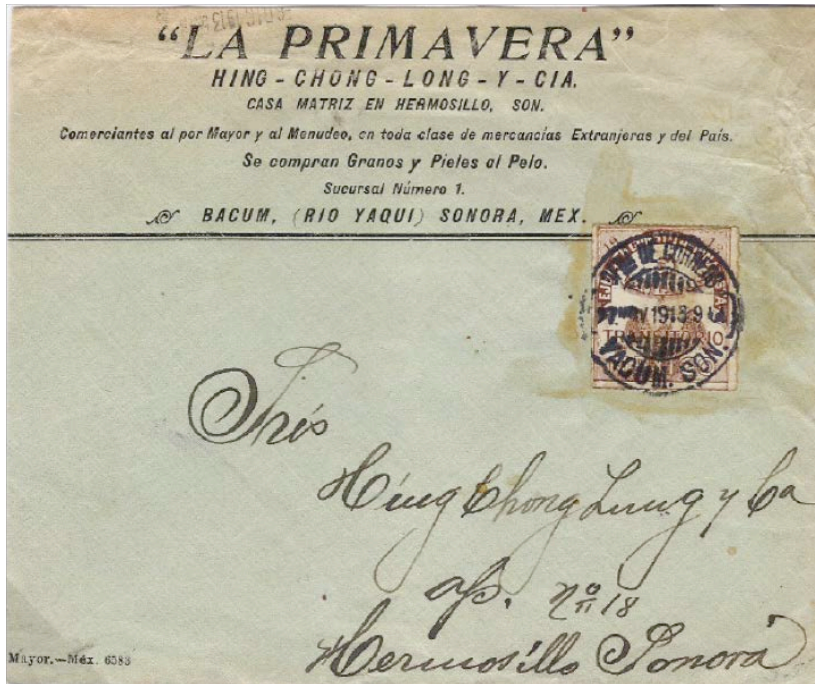 "LA PRIMAVERA"
HING-CHONG-LONG-Y-CIA.
CASA MATRIZ EN HERMOSILLO, SON.
Comerciantes al por Mayor y al Menudeo, en toda clase de mercancías Extranjeras y del País.
Se compran Granos y Pieles al Pelo.
Sucursal Número 1.
BACUM, (RIO YAQUI) SONORA, MEX.
DE CORREOS
1913 9
TRANSITORIO
YACUM. SON.
Sres
Hing Chong Lung y Ca
ap. nº 18
Hermosillo Sonora
Mayor.—Méx. 6583